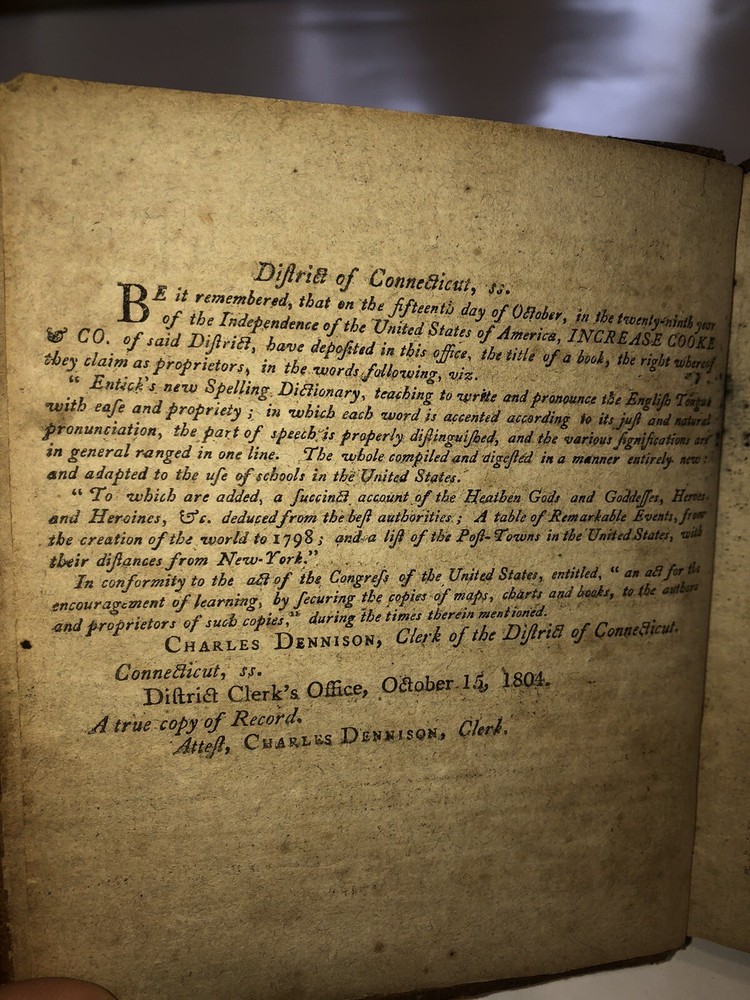 Diſtrict of Connecticut, ss.
BE it remembered, that on the fifteenth day of October, in the twenty-ninth year
of the Independence of the United States of America, INCREASE COOKE
& CO. of said Diſtrict, have depoſited in this office, the title of a book, the right whereof
they claim as proprietors, in the words following, viz.
" Entick's new Spelling Dictionary, teaching to write and pronounce the Engliſh Tongue
with eaſe and propriety ; in which each word is accented according to its juſt and natural
pronunciation, the part of speech is properly diſtinguiſhed, and the various ſignifications are
in general ranged in one line. The whole compiled and digeſted in a manner entirely new :
and adapted to the uſe of schools in the United States.
" To which are added, a ſuccinct account of the Heathen Gods and Goddeſſes, Heroes
and Heroines, &c. deduced from the beſt authorities ; A table of Remarkable Events, from
the creation of the world to 1798 ; and a liſt of the Poſt-Towns in the United States, with
their diſtances from New-York."
In conformity to the act of the Congreſs of the United States, entitled, " an act for the
encouragement of learning, by ſecuring the copies of maps, charts and books, to the authors
and proprietors of such copies," during the times therein mentioned.
CHARLES DENNISON, Clerk of the Diſtrict of Connecticut.
Connecticut, ss.
Diſtrict Clerk's Office, October 15, 1804.
A true copy of Record.
Atteſt, CHARLES DENNISON, Clerk.